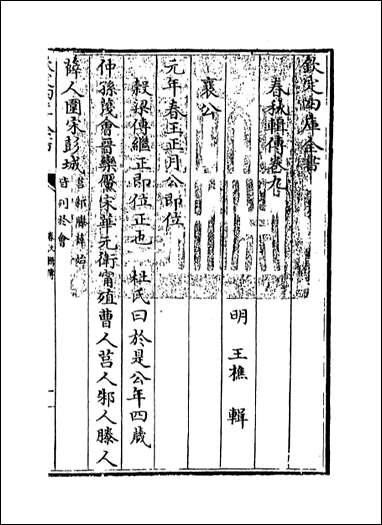 欽定四庫全書
春秋輯傳卷九
明 王樵 輯
襄公
元年春王正月公即位
穀梁傳繼正即位正也 杜氏曰於是公年四歳
仲孫蔑會晉欒黶宋華元衛甯殖曹人莒人邾人滕人
薛人圍宋彭城 莒邾滕薛始皆列於會
欽定四庫全書
春秋輯傳
一